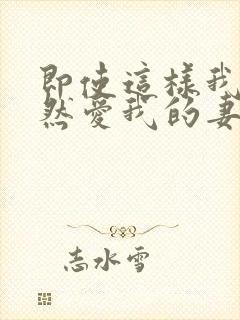 即使這樣我
然愛我的妻
志水雪